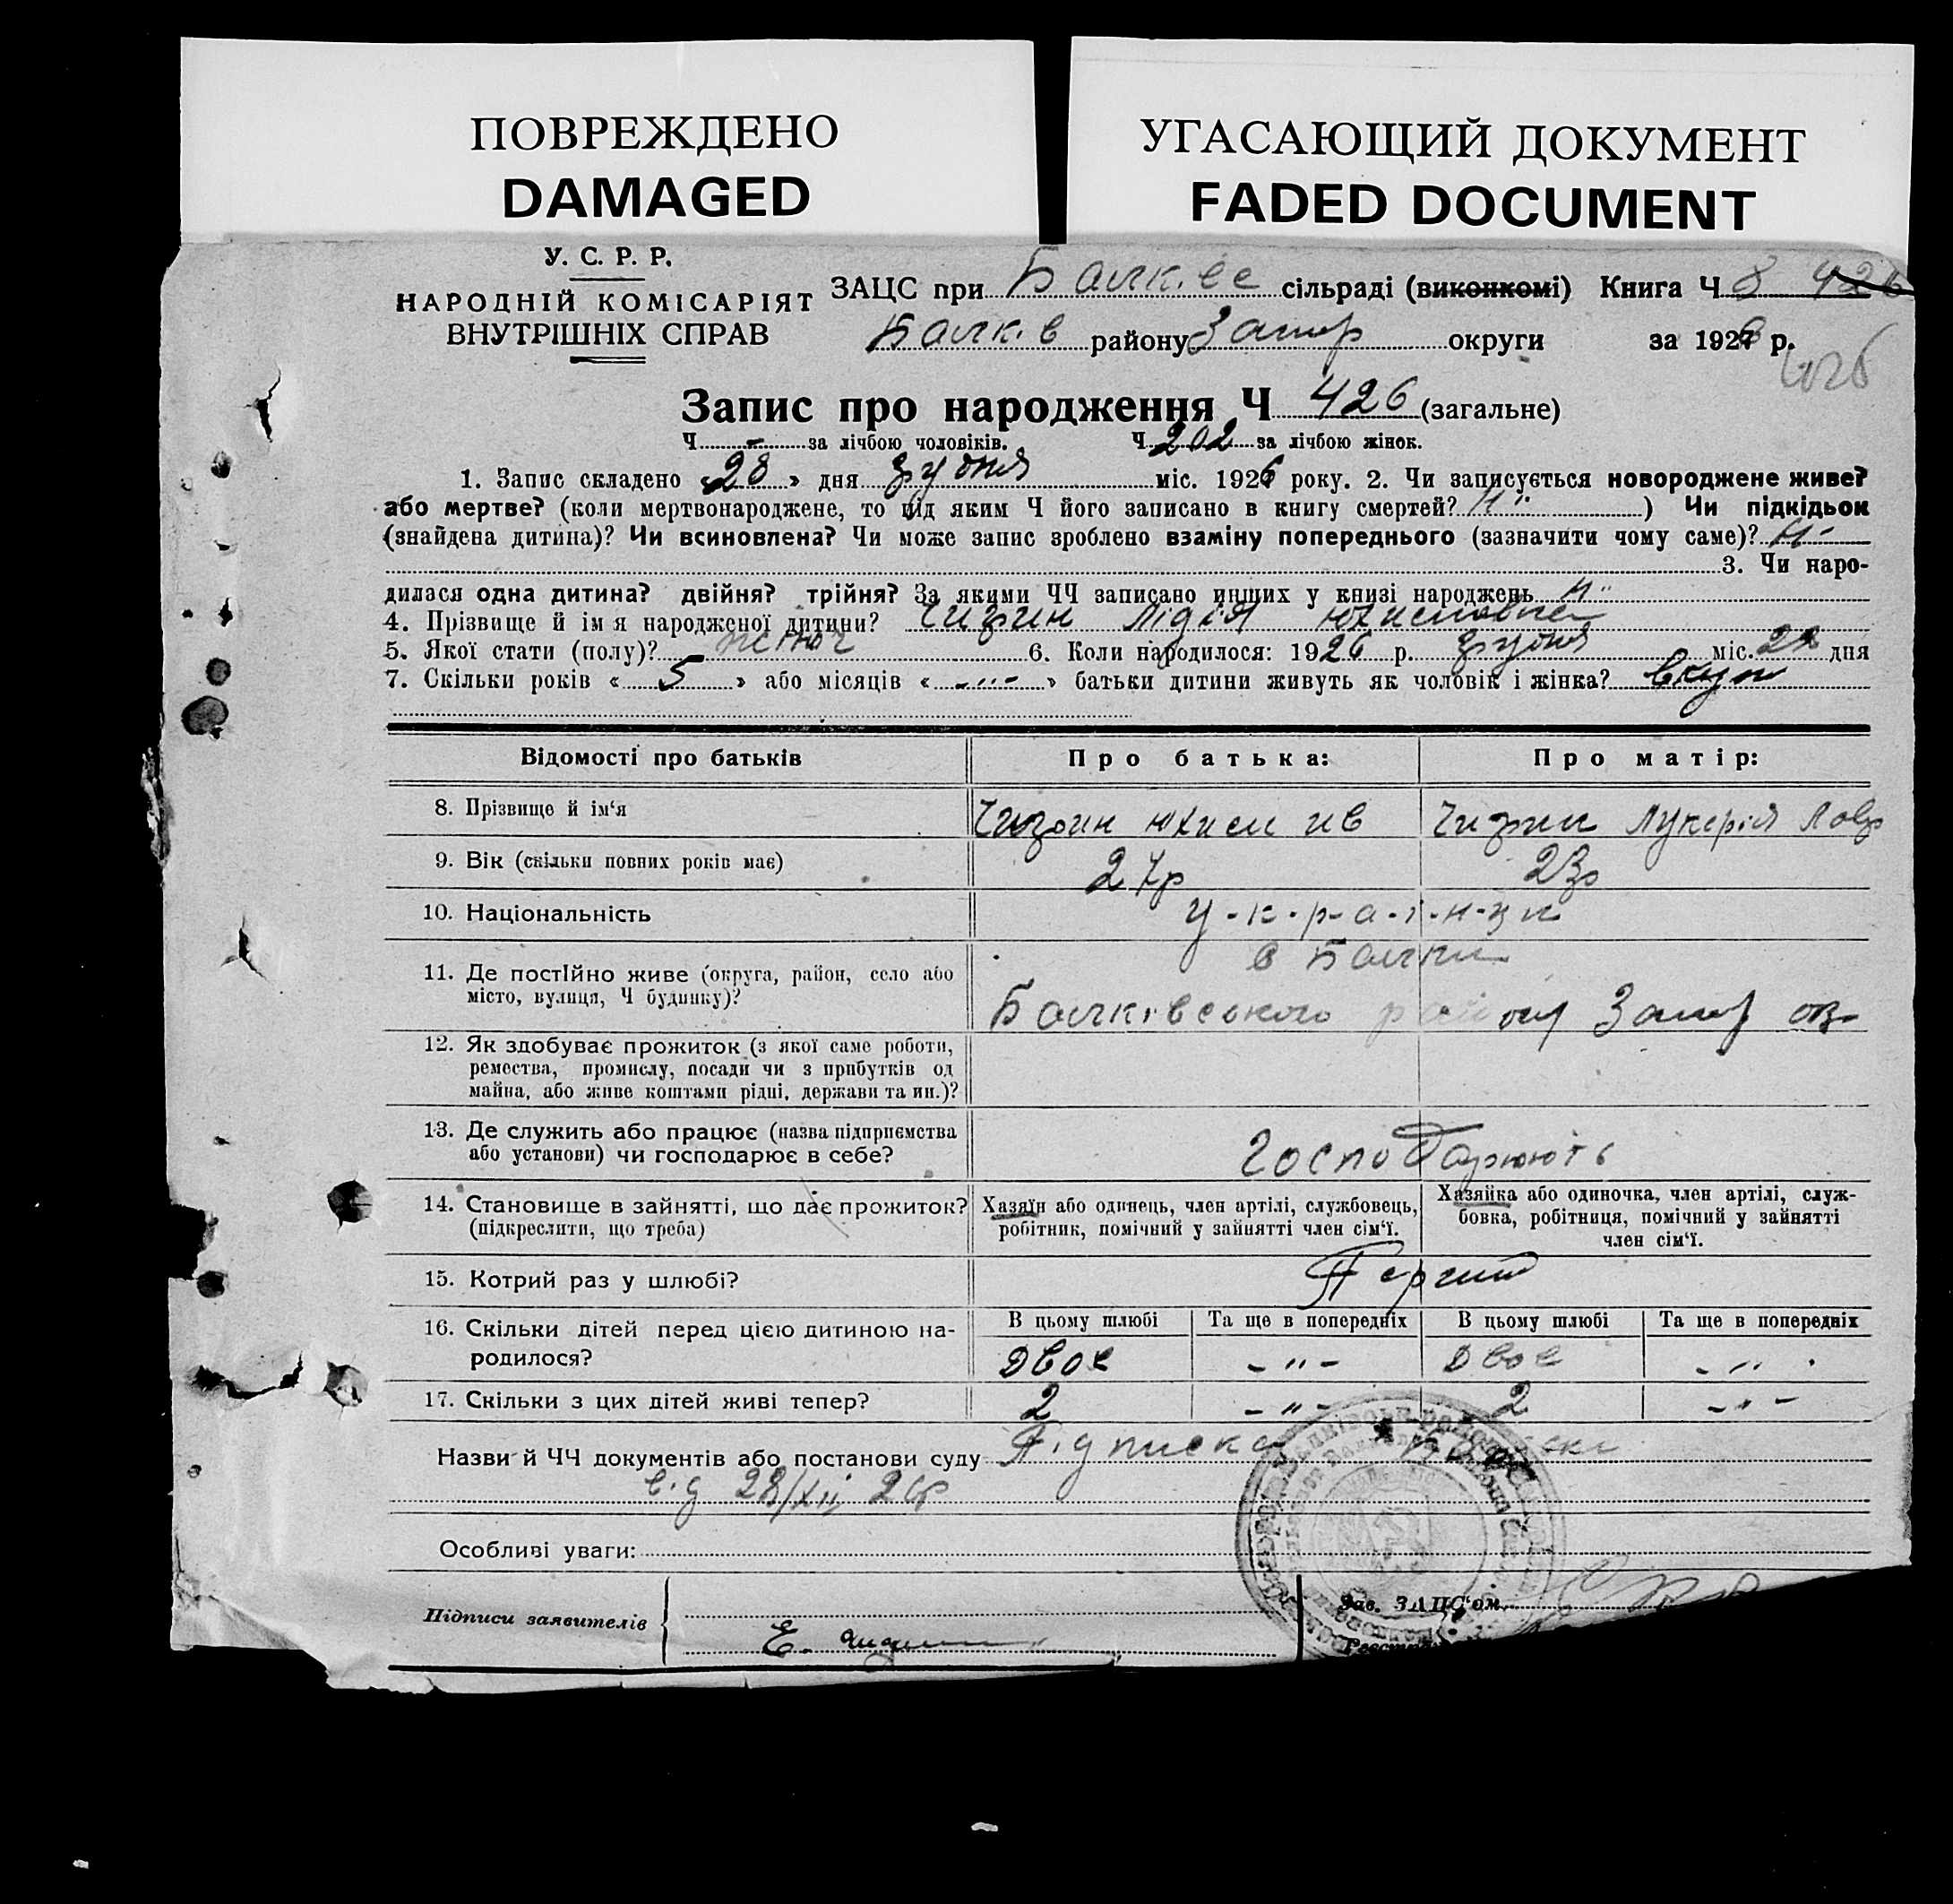 ПОВРЕЖДЕНО
DAMAGED
УГАСАЮЩИЙ ДОКУМЕНТ
FADED DOCUMENT
У. С. Р. Р.
НАРОДНІЙ КОМІСАРІЯТ
ВНУТРІШНІХ СПРАВ
ЗАЦС при сільраді (виконкомі) Книга Ч 8 426
району Запор округи за 1926 р.
Запис про народження Ч 426 (загальне)
Ч - за лічбою чоловіків. Ч 202 за лічбою жінок.
1. Запис складено «28» дня грудня міс. 1926 року. 2. Чи записується новороджене живе?
або мертве? (коли мертвонароджене, то під яким Ч його записано в книгу смертей? ) Чи підкідьок
(знайдена дитина)? Чи всиновлена? Чи може запис зроблено взаміну попереднього (зазначити чому саме)?
3. Чи наро-
дилася одна дитина? двійня? трійня? За якими ЧЧ записано инших у книзі народжень
4. Прізвище й ім'я народженої дитини? Чигрин Лідія Юхимовна
5. Якої стати (полу)? жіноч 6. Коли народилося: 1926 р. грудня міс. 22 дня
7. Скільки років « 5 » або місяців « -„- » батьки дитини живуть як чоловік і жінка? вкупі
Відомості про батьків Про батька: Про матір:
8. Прізвище й ім'я Чигрин Юхим Ів Чигрин Лукерія Лавр
9. Вік (скільки повних років має) 27р 23р
10. Національність у-к-р-а-ї-н-ці
11. Де постійно живе (округа, район, село або
місто, вулиця, Ч будинку)?
в Балки
Балківського району Запор ок
12. Як здобуває прожиток (з якої саме роботи,
ремества, промислу, посади чи з прибутків од
майна, або живе коштами рідні, держави та ин.)?
13. Де служить або працює (назва підприємства
або установи) чи господарює в себе?
Господарюють
14. Становище в зайнятті, що дає прожиток?
(підкреслити, що треба)
Хазяїн або одинець, член артілі, службовець,
робітник, помічний у зайнятті член сім'ї.
Хазяйка або одиночка, член артілі, служ-
бовка, робітниця, помічний у зайнятті
член сім'ї.
15. Котрий раз у шлюбі? Перший
16. Скільки дітей перед цією дитиною на-
родилося?
В цьому шлюбі Та ще в попередніх В цьому шлюбі Та ще в попередніх
двоє -„- двоє -„-
17. Скільки з цих дітей живі тепер? 2 -„- 2 -„-
Назви й ЧЧ документів або постанови суду Підписка
від 28/XII 26р
Особливі уваги:
Підписи заявителів
Е. Чигрин
Зав. ЗАЦС'ом